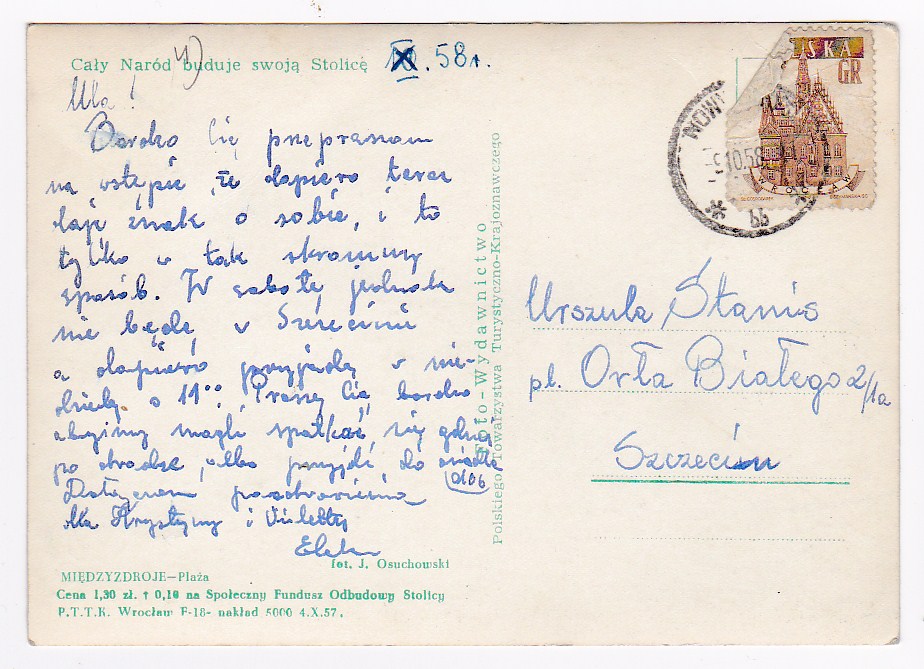 Cały Naród buduje swoją Stolicę
4)
X. 58 r.
Ula!
Bardzo Cię przepraszam
na wstępie, że dopiero teraz
daję znak o sobie, i to
tylko w tak skromny
sposób. W sobotę jednak
nie będę w Szczecinie
a dopiero przyjadę w nie-
dzielę o 11⁰⁰. Proszę Cię bardzo
abyśmy mogli spotkać się gdzieś
po obiedzie, albo przyjdź do
D106
pozdrowienia
dla Krystyny i Violetty
fot. J. Osuchowski
MIĘDZYZDROJE—Plaża
Cena 1,30 zł. + 0,10 na Społeczny Fundusz Odbudowy Stolicy
P.T.T.K. Wrocław F-18- nakład 5000 4.X.57.
Foto-Wydawnictwo
Polskiego Towarzystwa Turystyczno-Krajoznawczego
SKA
GR
WROCŁAW
NOWY
-9.10.58
66
Urszula Stanis
pl. Orła Białego 2/1a
Szczecin